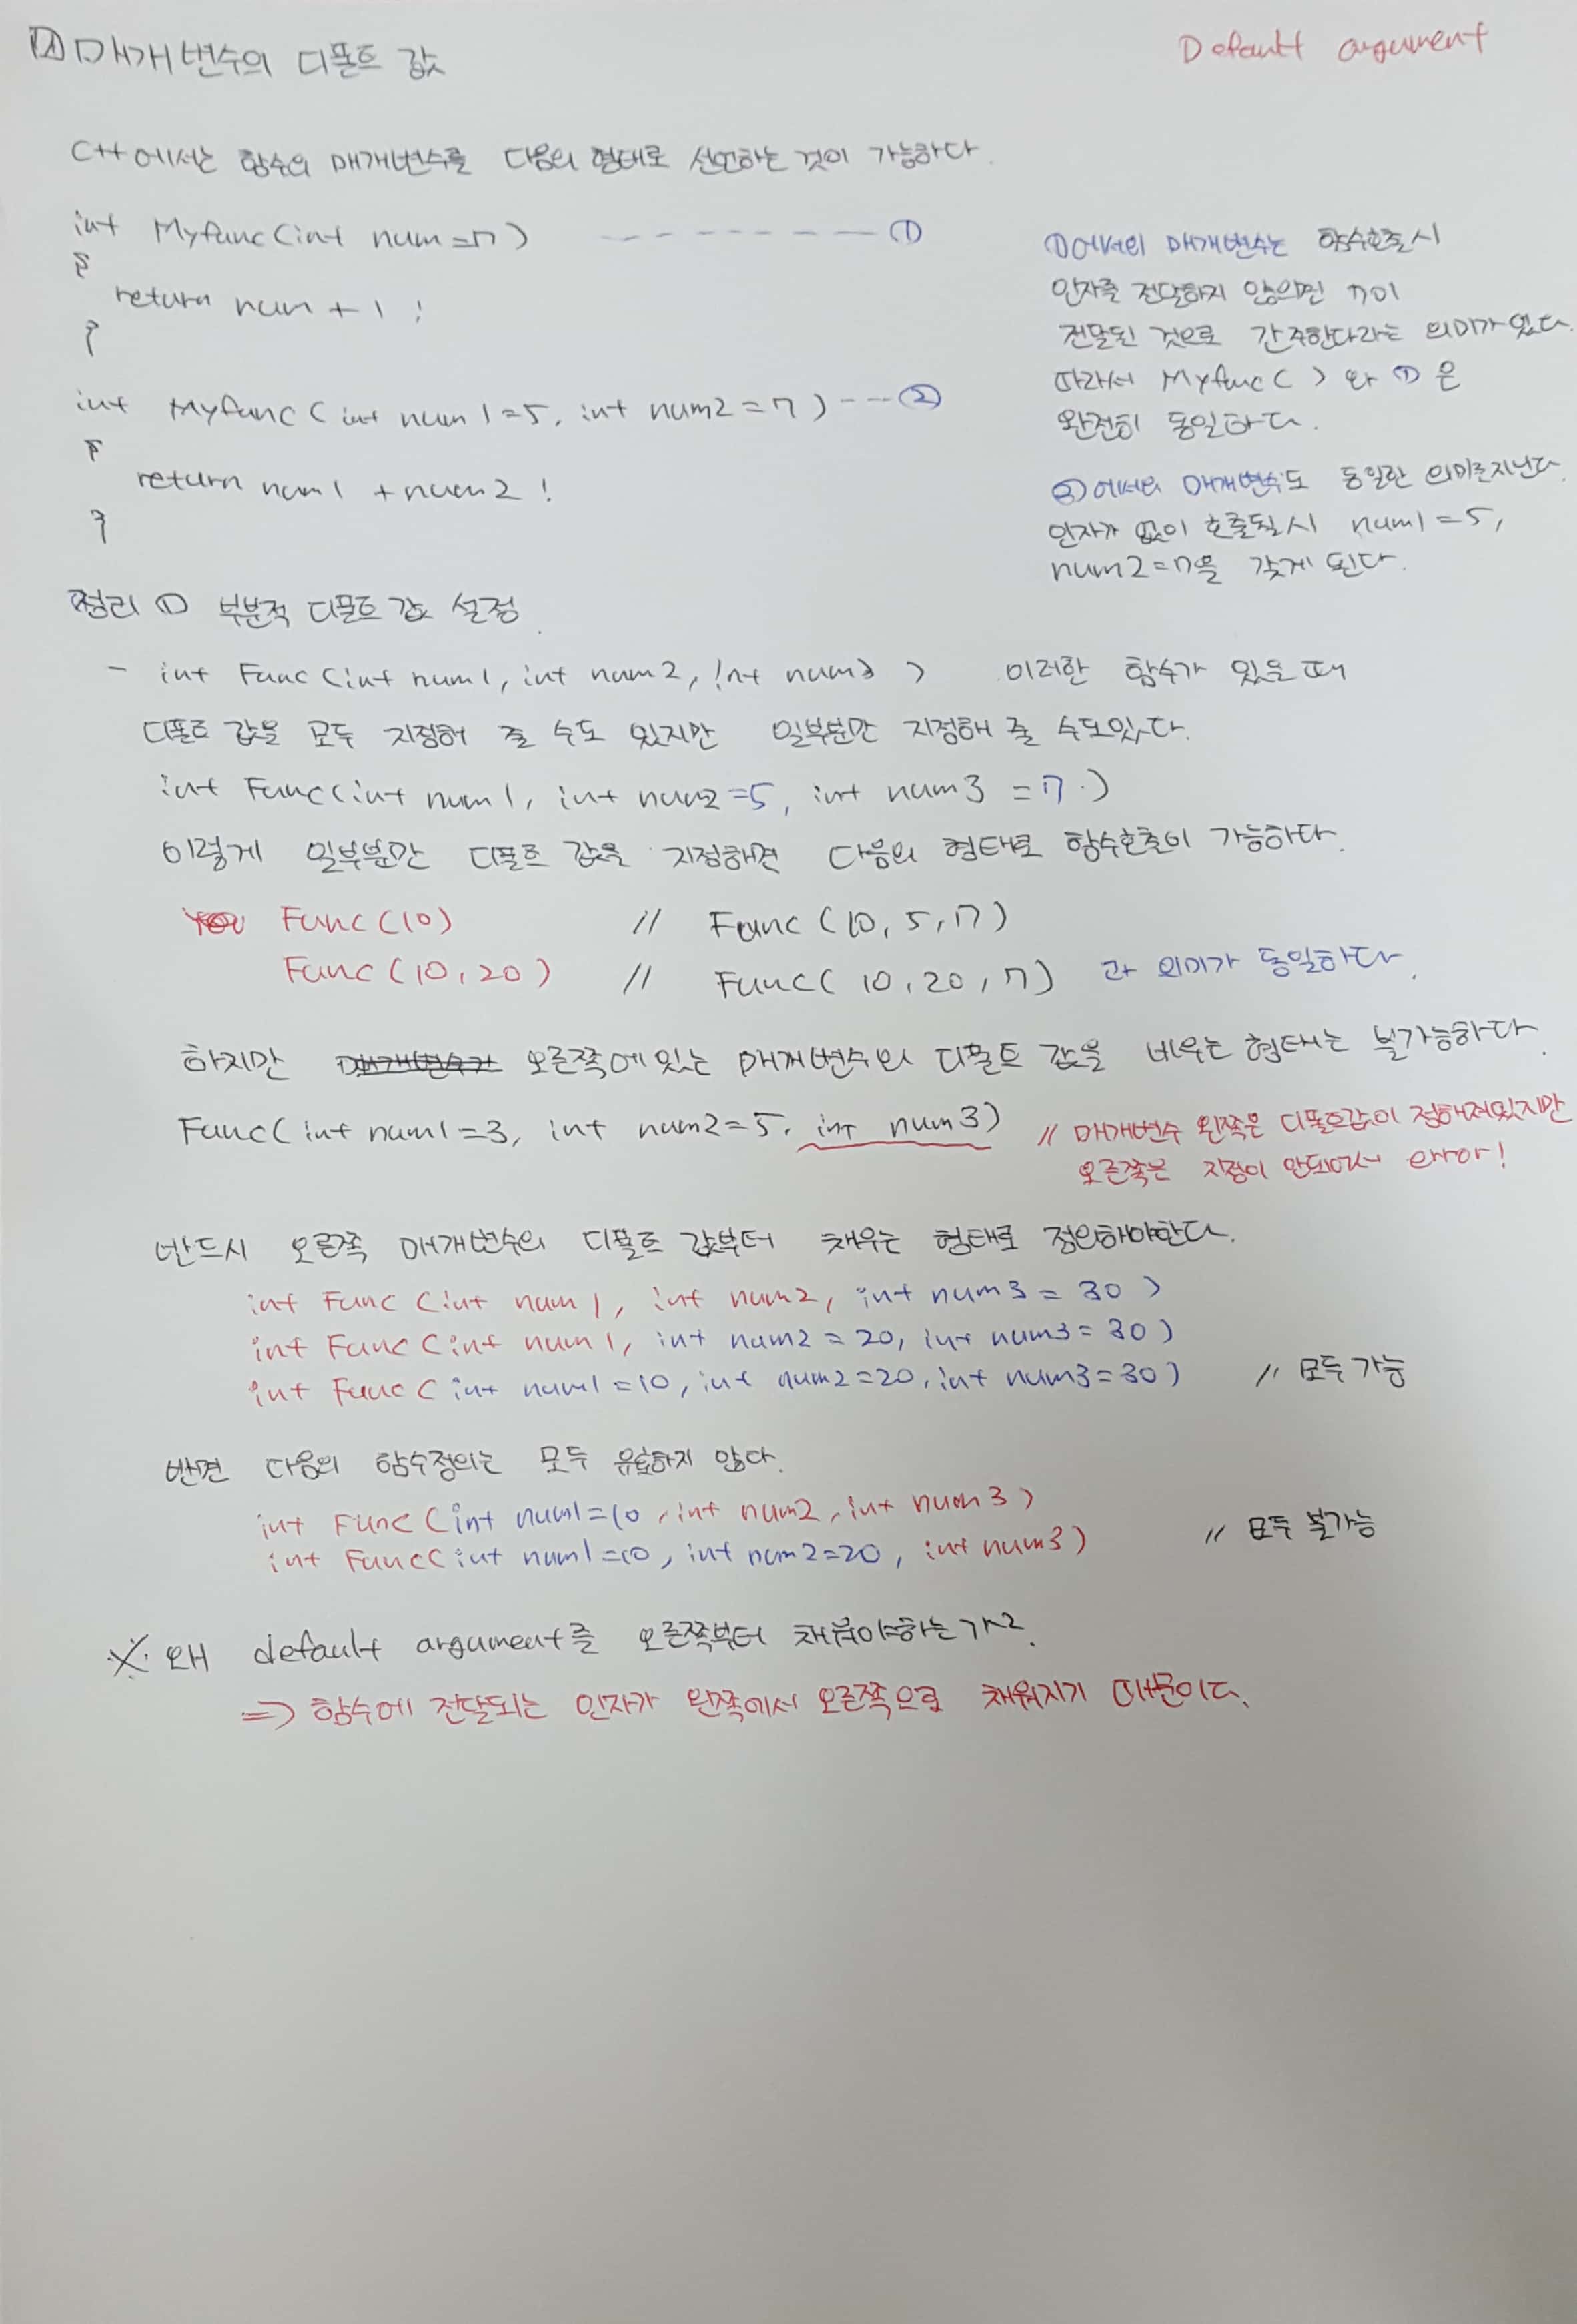 매개변수의 디폴트 값
Default argument
C++에서는 함수의 매개변수를 다음의 형태로 선언하는 것이 가능하다.
int Myfunc(int num=7) -------- ①
{
return num + 1;
}
int Myfunc(int num1=5, int num2=7) --- ②
{
return num1 + num2;
}
①에서의 매개변수는 함수호출시
인자를 전달하지 않으면 7이
전달된 것으로 간주한다라는 의미가 있다.
따라서 Myfunc( ) 와 ①은
완전히 동일하다.
②에서의 매개변수도 동일한 의미를 지닌다.
인자가 없이 호출될시 num1=5,
num2=7을 갖게 된다.
정리 ① 부분적 디폴트 값 설정.
- int Func(int num1, int num2, int num3) 이러한 함수가 있을 때
디폴트 값을 모두 지정해 줄 수도 있지만 일부분만 지정해 줄 수도있다.
int Func(int num1, int num2=5, int num3 =7.)
이렇게 일부분만 디폴트 값을 지정하면 다음의 형태로 함수호출이 가능하다.
Func(10) // Func(10, 5, 7)
Func(10, 20) // Func(10, 20, 7) 과 의미가 동일하다.
하지만 오른쪽에 있는 매개변수의 디폴트 값을 비우는 형태는 불가능하다.
Func(int num1=3, int num2=5, int num3) // 매개변수 왼쪽은 디폴트값이 정해져있지만
오른쪽은 지정이 안되어서 error!
반드시 오른쪽 매개변수의 디폴트 값부터 채우는 형태로 정의해야한다.
int Func(int num1, int num2, int num3 = 30)
int Func(int num1, int num2 = 20, int num3=30)
int Func(int num1=10, int num2=20, int num3=30) // 모두 가능
반면 다음의 함수정의는 모두 유효하지 않다.
int Func(int num1=10, int num2, int num3)
int Func(int num1=10, int num2=20, int num3) // 모두 불가능
※ 왜 default argument를 오른쪽부터 채워야하는가?
=> 함수에 전달되는 인자가 왼쪽에서 오른쪽으로 채워지기 때문이다.